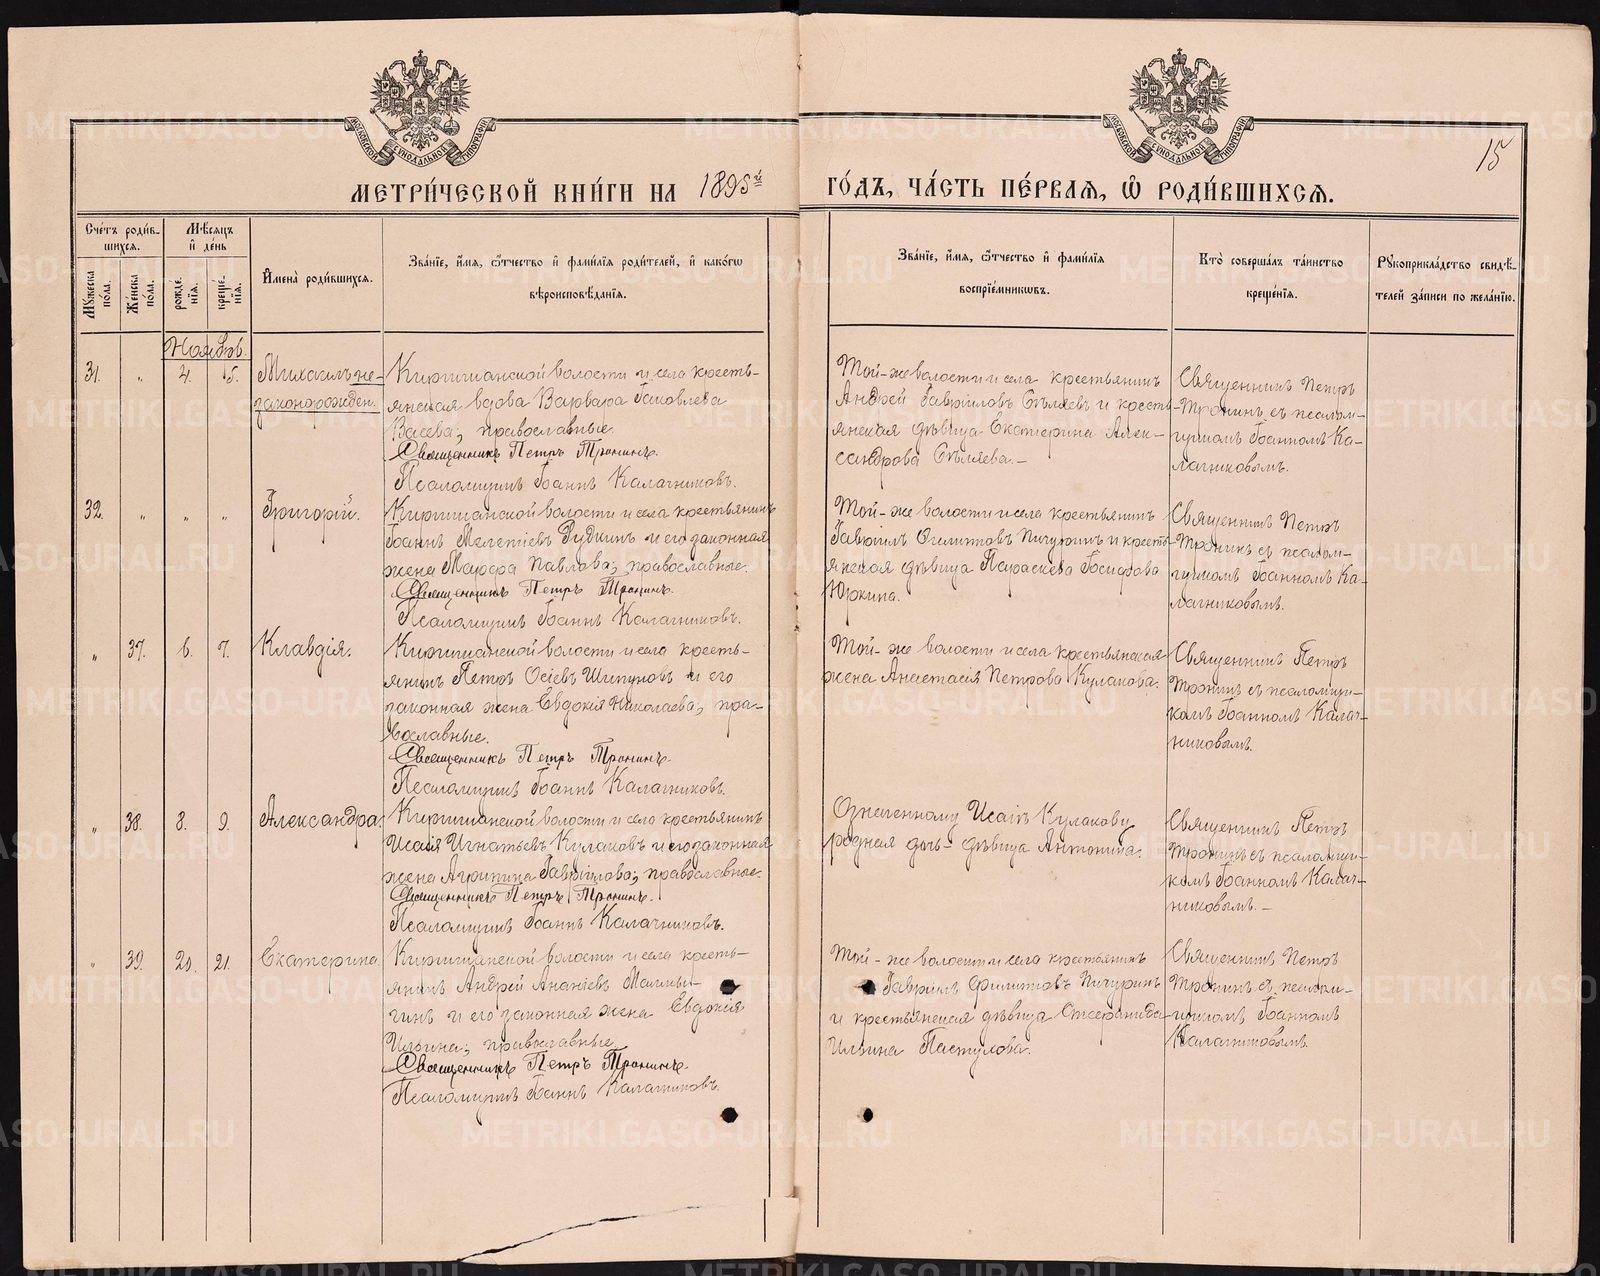 МЕТРИ́ЧЕСКОЙ КНИ́ГИ НА 1895й ГО́ДЪ, ЧА́СТЬ ПЕ́РВАЯ, Ѿ РОДИ́ВШИХСЯ.
15
МОСКОВСКОЙ СѴНОДАЛЬНОЙ ТИПОГРАФІИ
МОСКОВСКОЙ СѴНОДАЛЬНОЙ ТИПОГРАФІИ
Сче́тъ роди́в-
шихся.
Мꙋжеска по́ла.
Же́нска по́ла.
Мѣ́сяцъ
и҆ де́нь
рожде́-
нїѧ.
креще́-
нїѧ.
И҆мена̀ роди́вшихся.
Зва́нїе, и҆́мѧ, ѻ҆́тчество и҆ фами́лїѧ роди́телей, и҆ како́гѡ
вѣроисповѣ́данїѧ.
Зва́нїе, и҆́мѧ, ѻ҆́тчество и҆ фами́лїѧ
воспрїе́мникѡвъ.
Кто̀ соверша́лъ та́инство
креще́нїѧ.
Рꙋкоприкла́дство свидѣ́-
телей за́писи по жела́нїю.
Ноябрь.
31. " 4. 5. Михаилъ не-
законорожден.
Киргишанской волости и села кресть-
янская вдова Варвара Іаковлева
Васева; православные.
Священникъ Петръ Тронинъ.
Псаломщикъ Іоаннъ Калачниковъ.
Той-же волости и села крестьянинъ
Андрей Гавріиловъ Бѣляевъ и кресть-
янская дѣвица Екатерина Алек-
сандрова Бѣляева.-
Священникъ Петръ
Тронинъ съ псалом-
щикомъ Іоанномъ Ка-
лачниковымъ.
32. " " " Григорій.
Киргишанской волости и села крестьянинъ
Іоаннъ Мелетіевъ Рудкинъ и его законная
жена Марфа Павлова; православные.
Священникъ Петръ Тронинъ.
Псаломщикъ Іоаннъ Калачниковъ.
Той-же волости и села крестьянинъ
Гавріилъ Филиповъ Пичугинъ и кресть-
янская дѣвица Параскева Іосифова
Юркина.
Священникъ Петръ
Тронинъ съ псалом-
щикомъ Іоанномъ Ка-
лачниковымъ.
" 37. 6. 7. Клавдія.
Киргишанской волости и села кресть-
янинъ Петръ Осіевъ Шипуновъ и его
законная жена Евдокія Николаева; пра-
вославные.
Священникъ Петръ Тронинъ.
Псаломщикъ Іоаннъ Калачниковъ.
Той-же волости и села крестьянская
жена Анастасія Петрова Кулакова.
Священникъ Петръ
Тронинъ съ псаломщи-
комъ Іоанномъ Калач-
никовымъ.
" 38. 8. 9. Александра.
Киргишанской волости и села крестьянинъ
Исаія Игнатьевъ Кулаковъ и его законная
жена Агрипина Гавріилова; православные.
Священникъ Петръ Тронинъ.
Псаломщикъ Іоаннъ Калачниковъ.
Означенному Исаіи Кулакову
родная дочь- дѣвица Антонина.
Священникъ Петръ
Тронинъ съ псаломщи-
комъ Іоанномъ Калач-
никовымъ.-
" 39. 20. 21. Екатерина.
Киргишанской волости и села кресть-
янинъ Андрей Ананіевъ Малмы-
гинъ и его законная жена Евдокія
Ильина; православные.
Священникъ Петръ Тронинъ.
Псаломщикъ Іоаннъ Калачниковъ.
Той-же волости и села крестьянинъ
Гавріилъ Филиповъ Пичугинъ
и крестьянская дѣвица
Ильина Пастухова.
Священникъ Петръ
Тронинъ съ псалом-
щикомъ Іоанномъ
Калачниковымъ.
METRIKI.GASO-URAL.RU